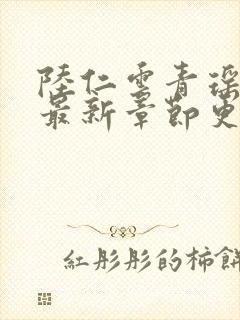 陸仁雲青瑶
最新章節更
紅彤彤的柿餅